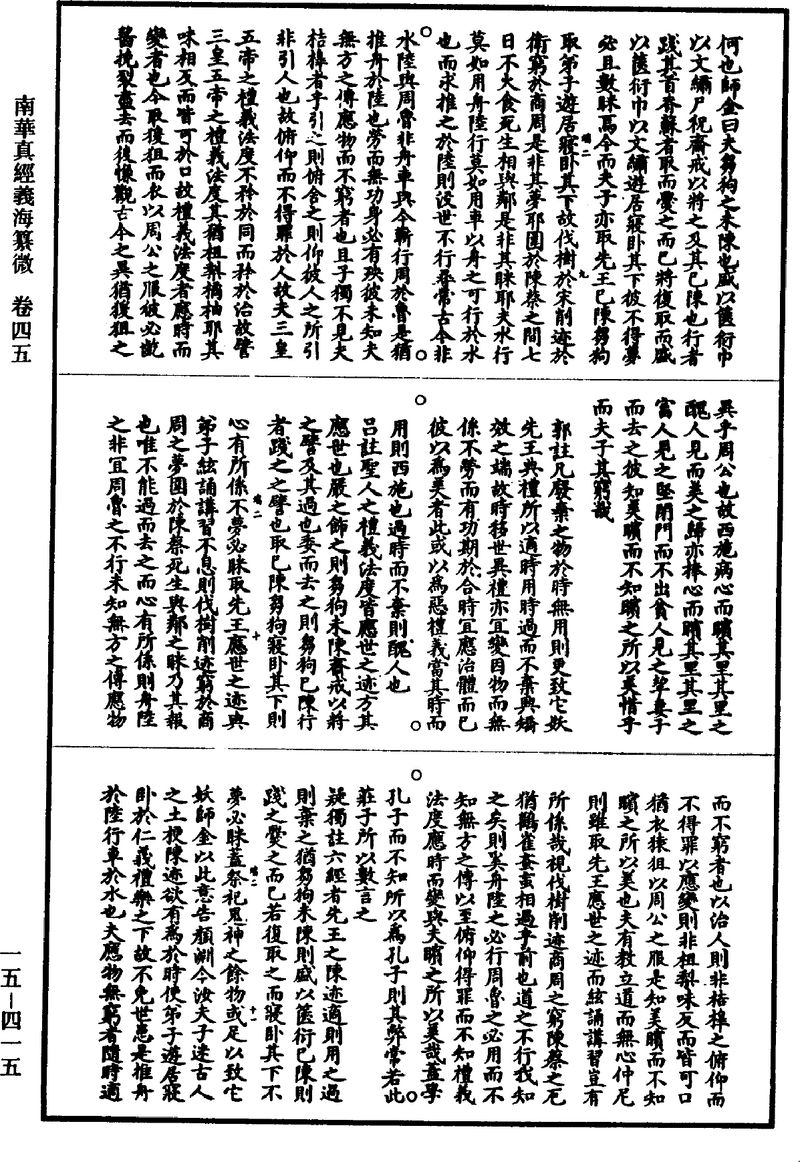 南華真經義海纂微　卷四五
何也師金曰夫芻狗之未陳也盛以篋衍巾
以文繡尸祝齋戒以將之及其已陳也行者
踐其首脊蘇者取而爨之而已將復取而盛
以篋衍巾以文繡遊居寢卧其下彼不得夢
必且數眯焉今而夫子亦取先王已陳芻狗
取弟子遊居寢卧其下故伐樹於宋削迹於
衛窮於商周是非其夢耶圍於陳蔡之間七
日不火食死生相與鄰是非其眯耶夫水行
莫如用舟陸行莫如用車以舟之可行於水
也而求推之於陸則没世不行尋常古今非
水陸與周魯非舟車與今蘄行周於魯是猶
推舟於陸也勞而無功身必有殃彼未知夫
無方之傳應物而不窮者也且子獨不見夫
桔槔者乎引之則俯舍之則仰彼人之所引
非引人也故俯仰而不得罪於人故夫三皇
五帝之禮義法度不矜於同而矜於治故譬
三皇五帝之禮義法度其猶柤梨橘柚耶其
味相反而皆可於口故禮義法度者應時而
變者也今取猨狙而衣以周公之服彼必齕
齧挽裂盡去而後慊觀古今之異猶猨狙之
異乎周公也故西施病心而矉其里其里之
醜人見而美之歸亦捧心而矉其里其里之
富人見之堅閉門而不出貧人見之挈妻子
而去之彼知美矉而不知矉之所以美惜乎
而夫子其窮哉
郭註凡廢棄之物於時無用則更致它妖
先王典禮所以適時用時過而不棄興矯
效之端故時移世異禮亦宜變因物而無
係不勞而有功期於合時宜應治體而已
彼以爲美者此或以爲惡禮義當其時而
用則西施也過時而不棄則醜人也
吕註聖人之禮義法度皆應世之迹方其
應世也嚴之飾之則芻狗未陳齋戒以將
之譬及其過也委而去之則芻狗已陳行
者踐之之譬也取已陳芻狗寢卧其下則
心有所係不夢必眯取先王應世之迹與
弟子絃誦講習不息則伐樹削迹窮於商
周之夢圍於陳蔡死生與鄰之眯乃其報
也唯不能過而去之而心有所係則舟陸
之非宜周魯之不行未知無方之傳應物
而不窮者也以治人則非桔槔之俯仰而
不得罪以應變則非柤梨味反而皆可口
猶衣猨狙以周公之服是知美矉而不知
矉之所以美也夫有教立道而無心仲尼
則雖取先王應世之迹而絃誦講習豈有
所係哉視伐樹削迹商周之窮陳蔡之厄
猶鸛雀蚉䖟相過乎前也道之不行我知
之矣則奚舟陸之必行周魯之必用而不
知無方之傳以至俯仰得罪而不知禮義
法度應時而變與夫矉之所以美哉蓋學
孔子而不知所以爲孔子則其弊常若此
莊子所以數言之
疑獨註六經者先王之陳迹適則用之過
則棄之猶芻狗未陳則盛以篋衍已陳則
踐之爨之而已若復取之而寢卧其下不
夢必眯蓋祭祀鬼神之餘物或足以致它
妖師金以此意告顏淵今汝夫子迷古人
之土梗陳迹欲有爲於時使弟子遊居寢
卧於仁義禮樂之下故不免世患是推舟
於陸行車於水也夫應物無窮者隨時適
一五—四一五